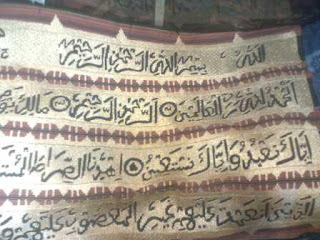 الله بسم الله الرحمن الرحيم
الحمد لله رب العالمين الرحمن الرحيم مالك يوم
إياك نعبد وإياك نستعين اهدنا الصراط المستق
أنعمت عليهم غير المغضوب عليهم و